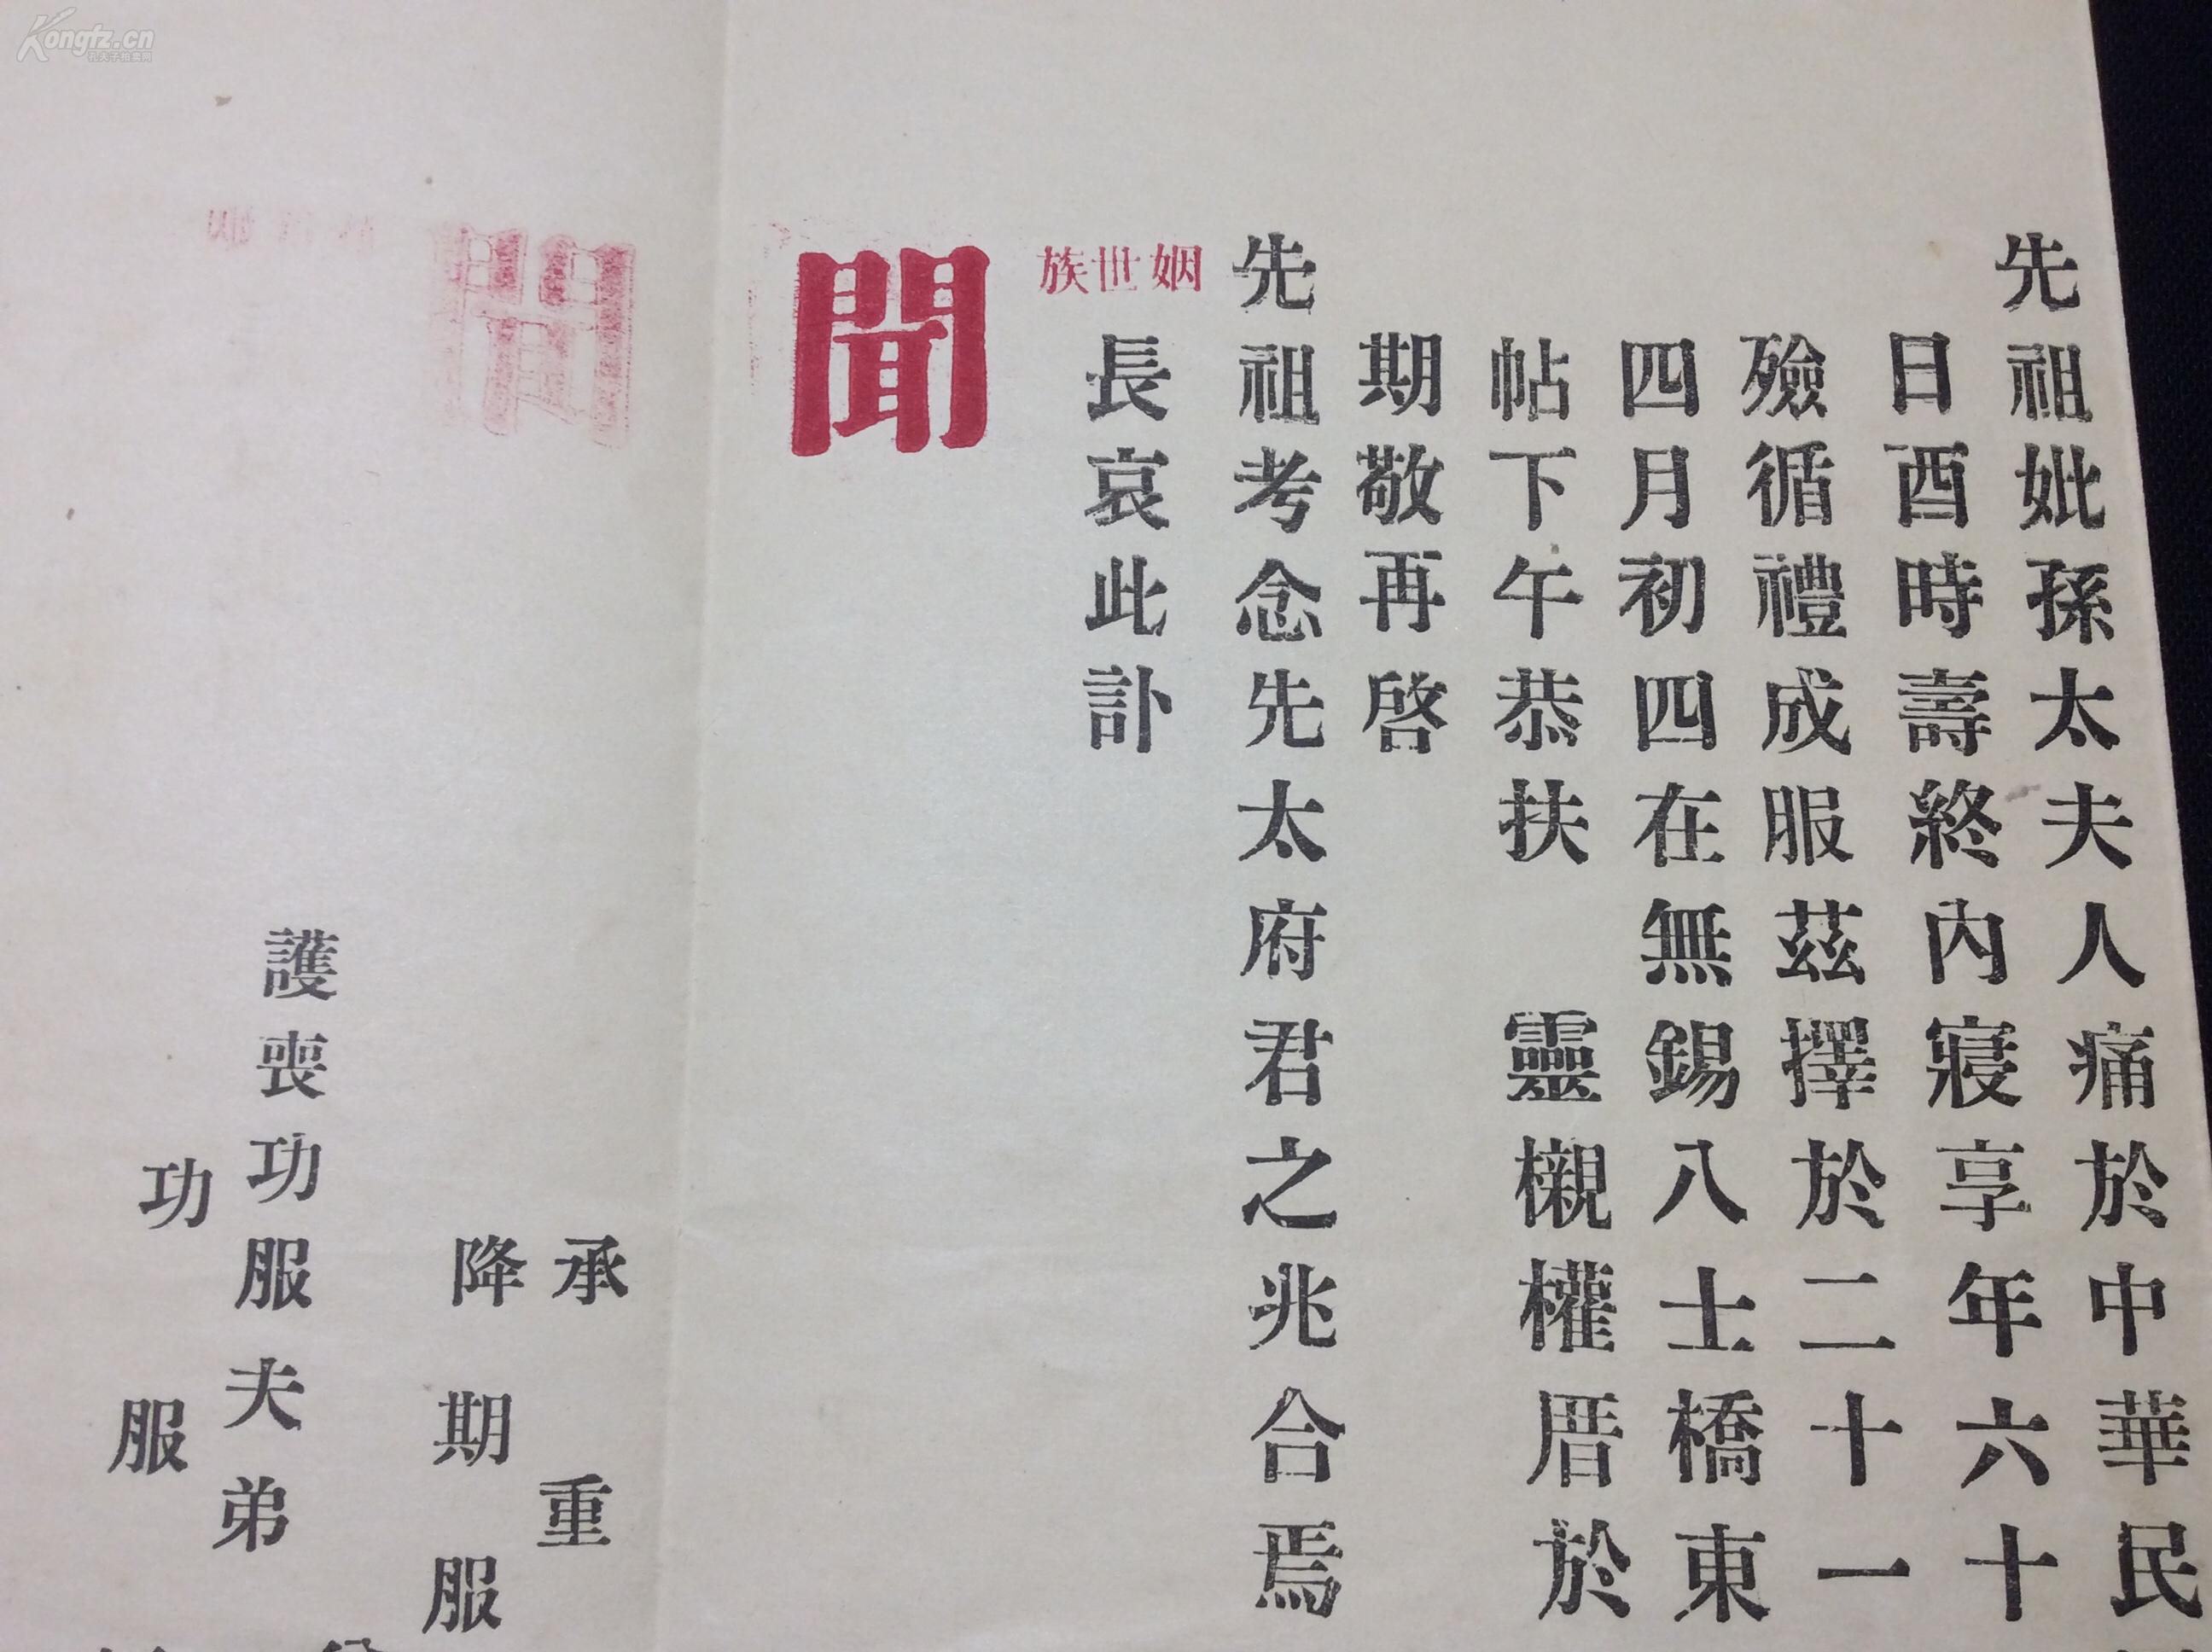 先祖妣孫太夫人痛於中華民
日酉時壽終內寢享年六十
殮循禮成服茲擇於二十一
四月初四四在無錫八士橋東
帖下午恭扶　靈櫬權厝於
期敬再啓
先祖考念先太府君之兆合焉
長哀此訃
姻世族
聞
承重
降期服
護喪功服夫弟
功服
Kongfz.cn